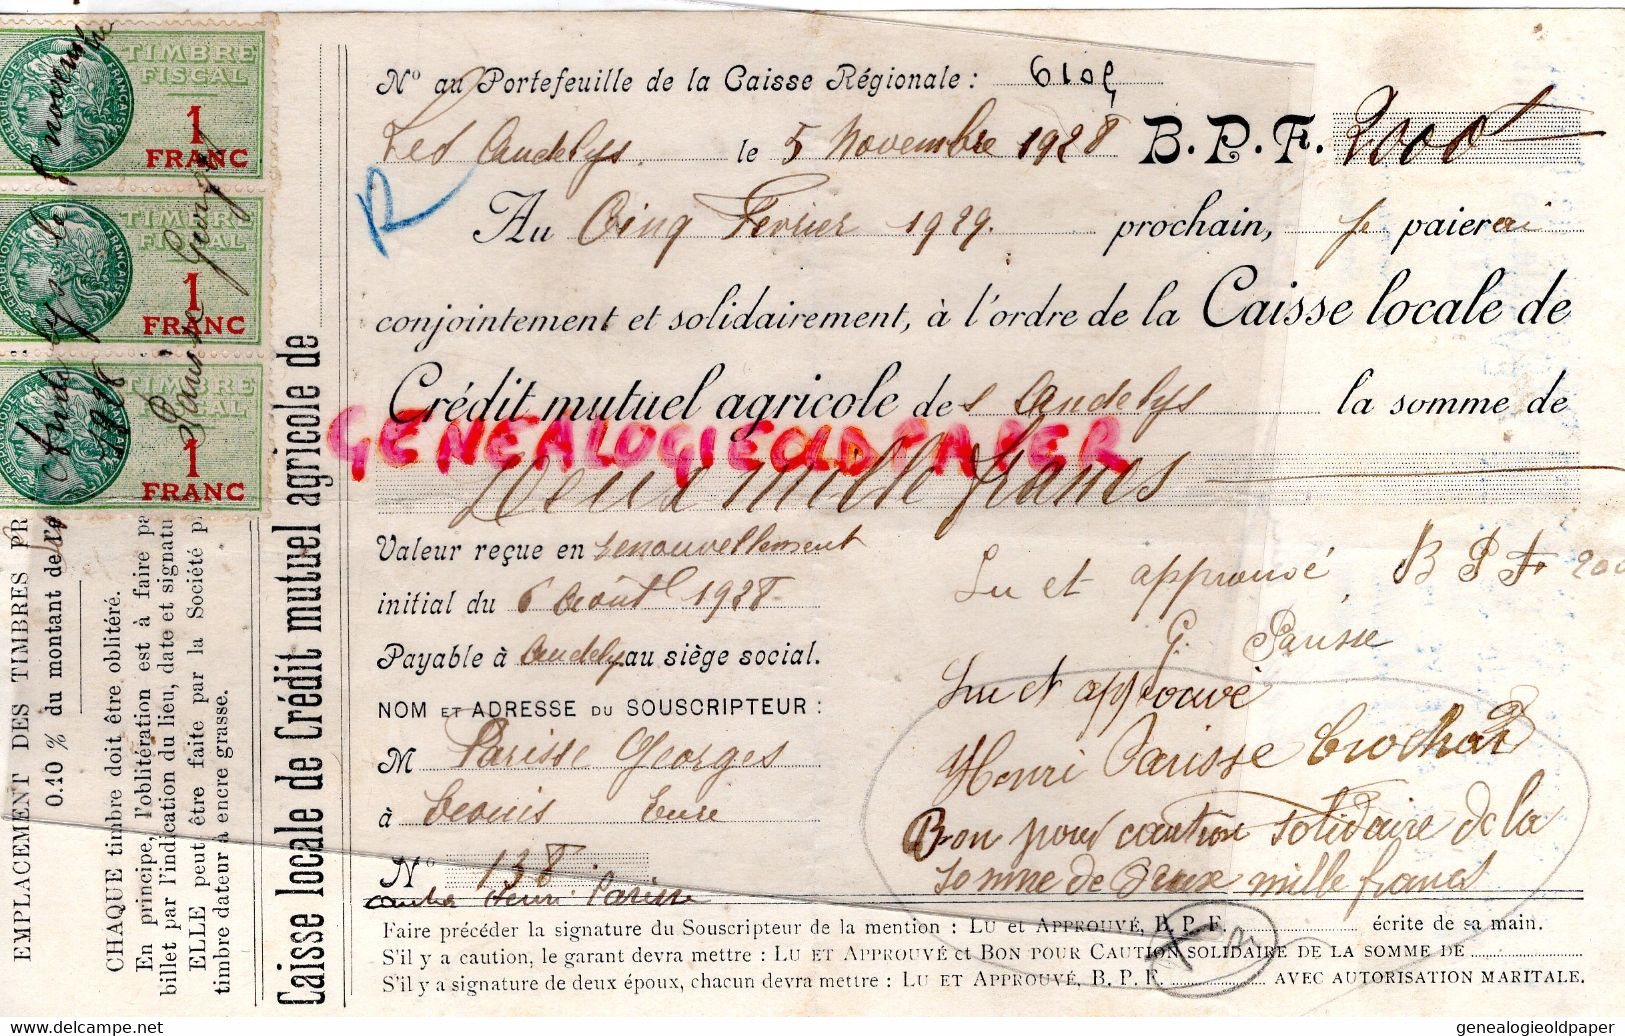 TIMBRE
FISCAL
1
FRANC
TIMBRE
FISCAL
1
FRANC
TIMBRE
FISCAL
1
FRANC
EMPLACEMENT DES TIMBRES PR
0.10 % du montant de
CHAQUE timbre doit être oblitéré.
En principe, l'oblitération est à faire pa
billet par l'indication du lieu, date et signatu
ELLE peut être faite par la Société p
timbre dateur à encre grasse.
Caisse locale de Crédit mutuel agricole de
No au Portefeuille de la Caisse Régionale :
Les Andelys. le 5 Novembre 1928 B.P.F. 2000
Au Cinq Fevrier 1929. prochain, je paierai
conjointement et solidairement, à l'ordre de la Caisse locale de
Crédit mutuel agricole des Andelys la somme de
GENEALOGIEOLDPAPER
Deux mille francs
Valeur reçue en renouvellement
initial du 6 Août 1928
Payable à Andelys au siège social.
NOM ET ADRESSE DU SOUSCRIPTEUR :
M Parisse Georges
à Eure
No 138
Henri Parisse
Lu et approuvé, B P F 200
G. Parisse
Lu et approuvé
Henri Parisse Crochon
Bon pour caution solidaire de la
somme de Deux mille francs
Faire précéder la signature du Souscripteur de la mention : LU ET APPROUVÉ, B. P. F. écrite de sa main.
S'il y a caution, le garant devra mettre : LU ET APPROUVÉ et BON POUR CAUTION SOLIDAIRE DE LA SOMME DE
S'il y a signature de deux époux, chacun devra mettre : LU ET APPROUVÉ, B. P. F. AVEC AUTORISATION MARITALE.
www.delcampe.net
genealogieoldpaper